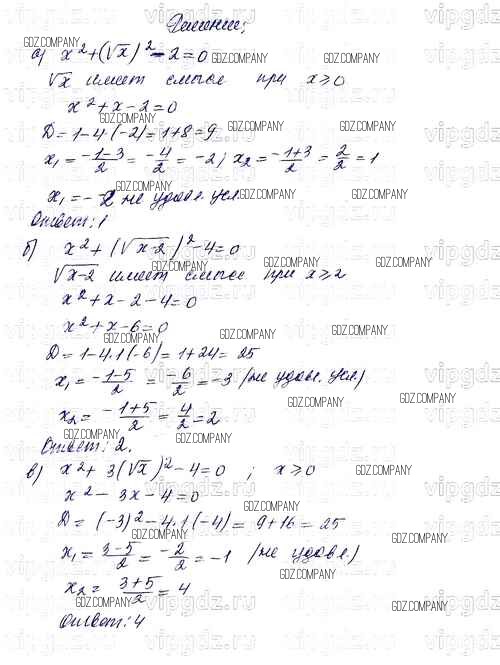 Решение;
а) x² + (√x)² - 2 = 0
√x имеет смысл при x ⩾ 0
x² + x - 2 = 0
D = 1 - 4·(-2) = 1 + 8 = 9
x₁ = (-1-3)/2 = -4/2 = -2; x₂ = (-1+3)/2 = 2/2 = 1
x₁ = -2 не удовл. усл.
Ответ: 1
б) x² + (√x-2)² - 4 = 0
√x-2 имеет смысл при x ⩾ 2
x² + x - 2 - 4 = 0
x² + x - 6 = 0
D = 1 - 4·1·(-6) = 1 + 24 = 25
x₁ = (-1-5)/2 = -6/2 = -3 (не удовл. усл)
x₂ = (-1+5)/2 = 4/2 = 2
Ответ: 2.
в) x² + 3(√x)² - 4 = 0 ; x ⩾ 0
x² - 3x - 4 = 0
D = (-3)² - 4·1·(-4) = 9 + 16 = 25
x₁ = (3-5)/2 = -2/2 = -1 (не удовл.)
x₂ = (3+5)/2 = 4
Ответ: 4